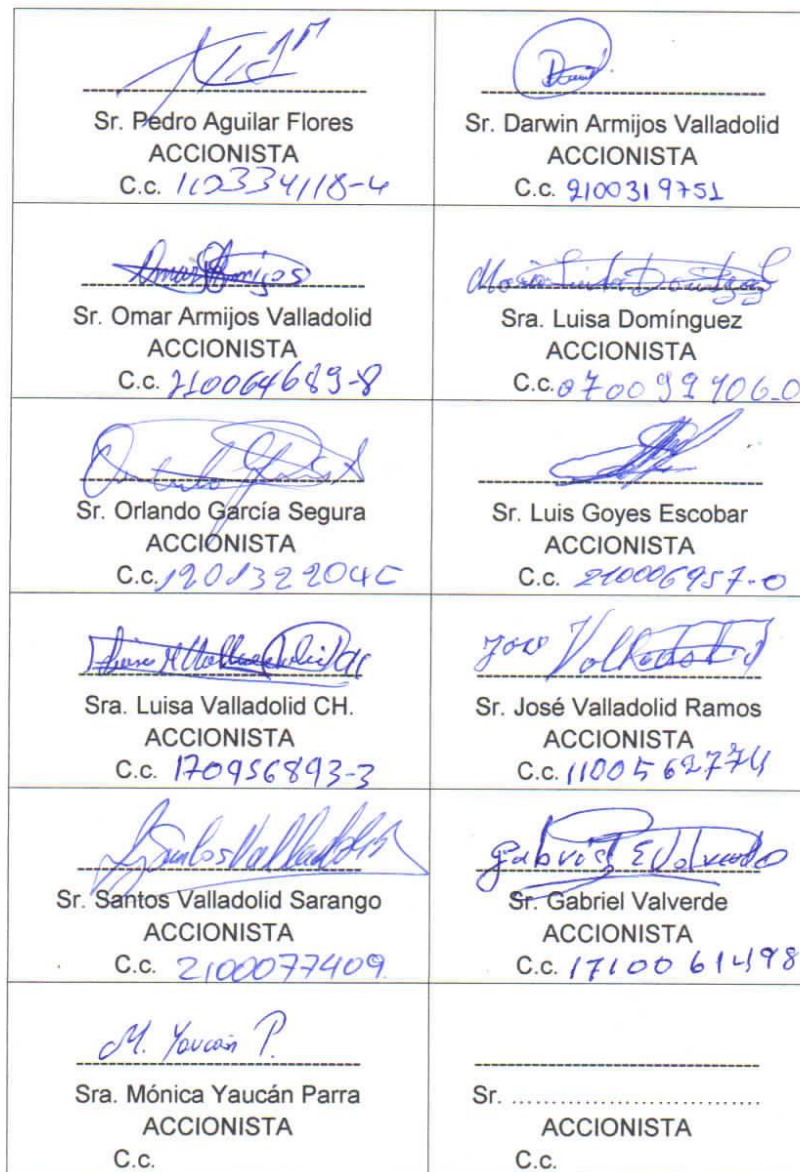 Sr. Pedro Aguilar Flores
ACCIONISTA
C.c. 110334118-4
Sr. Darwin Armijos Valladolid
ACCIONISTA
C.c. 2100319751
Omar Armijos
Sr. Omar Armijos Valladolid
ACCIONISTA
C.c. 210064689-8
Sra. Luisa Domínguez
ACCIONISTA
C.c. 070099906-0
Sr. Orlando García Segura
ACCIONISTA
C.c.
Sr. Luis Goyes Escobar
ACCIONISTA
C.c. 210006957-0
Sra. Luisa Valladolid CH.
ACCIONISTA
C.c. 170956893-3
José Valladolid
Sr. José Valladolid Ramos
ACCIONISTA
C.c. 1100562774
Santos Valladolid
Sr. Santos Valladolid Sarango
ACCIONISTA
C.c. 2100077409
Gabriel E Valverde
Sr. Gabriel Valverde
ACCIONISTA
C.c. 1710061498
M. Yaucán P.
Sra. Mónica Yaucán Parra
ACCIONISTA
C.c.
Sr. ..............................
ACCIONISTA
C.c.